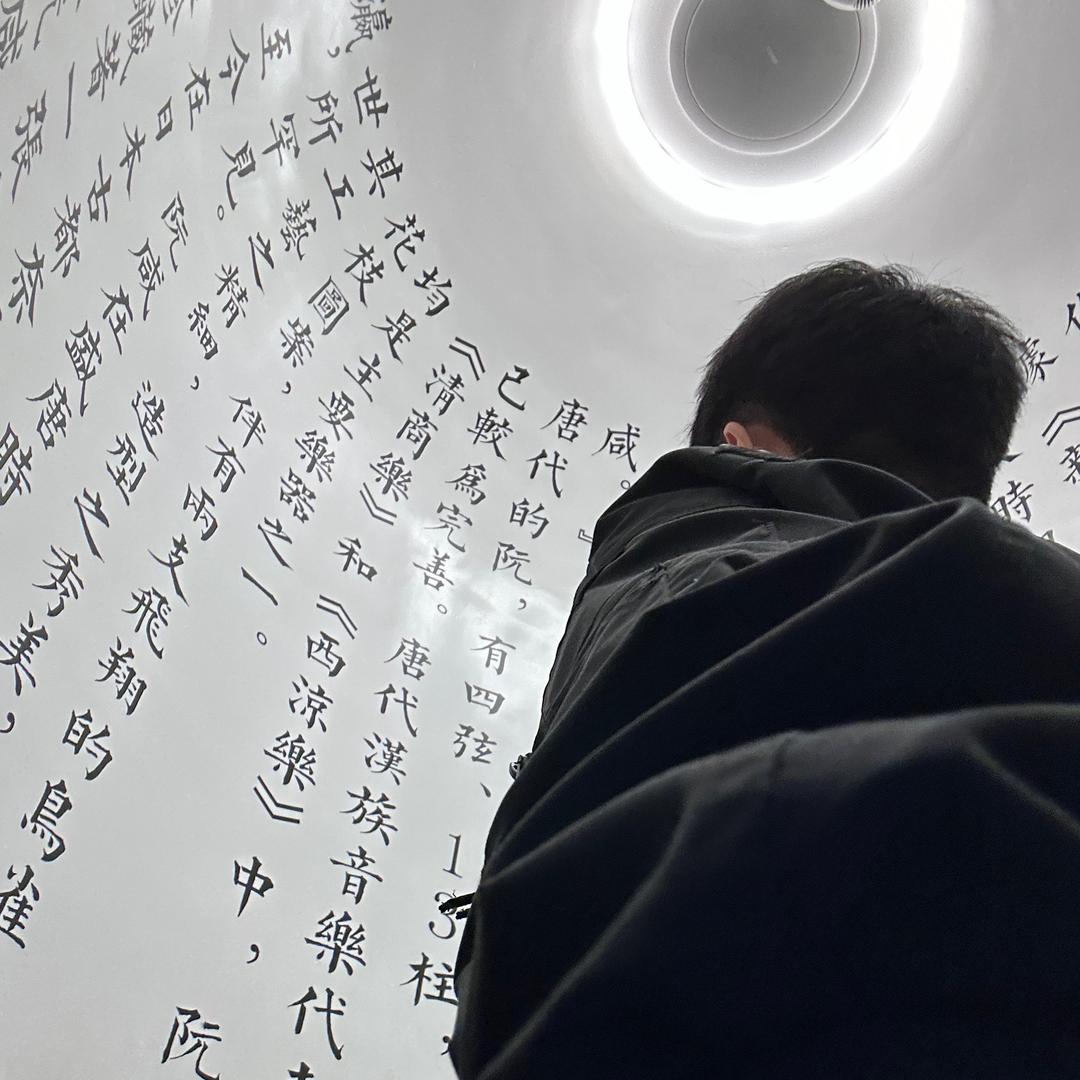 時
咸。』
唐代的阮,有四弦、13柱,
已較爲完善。唐代漢族音樂代
《清商樂》和《西涼樂》中,阮
均是主要樂器之一。
花枝圖案,伴有兩支飛翔的鳥雀
其工藝之精細,造型之秀美,
世所罕見。阮咸在盛唐時
,至今在日本古都奈
藏着一張
咸